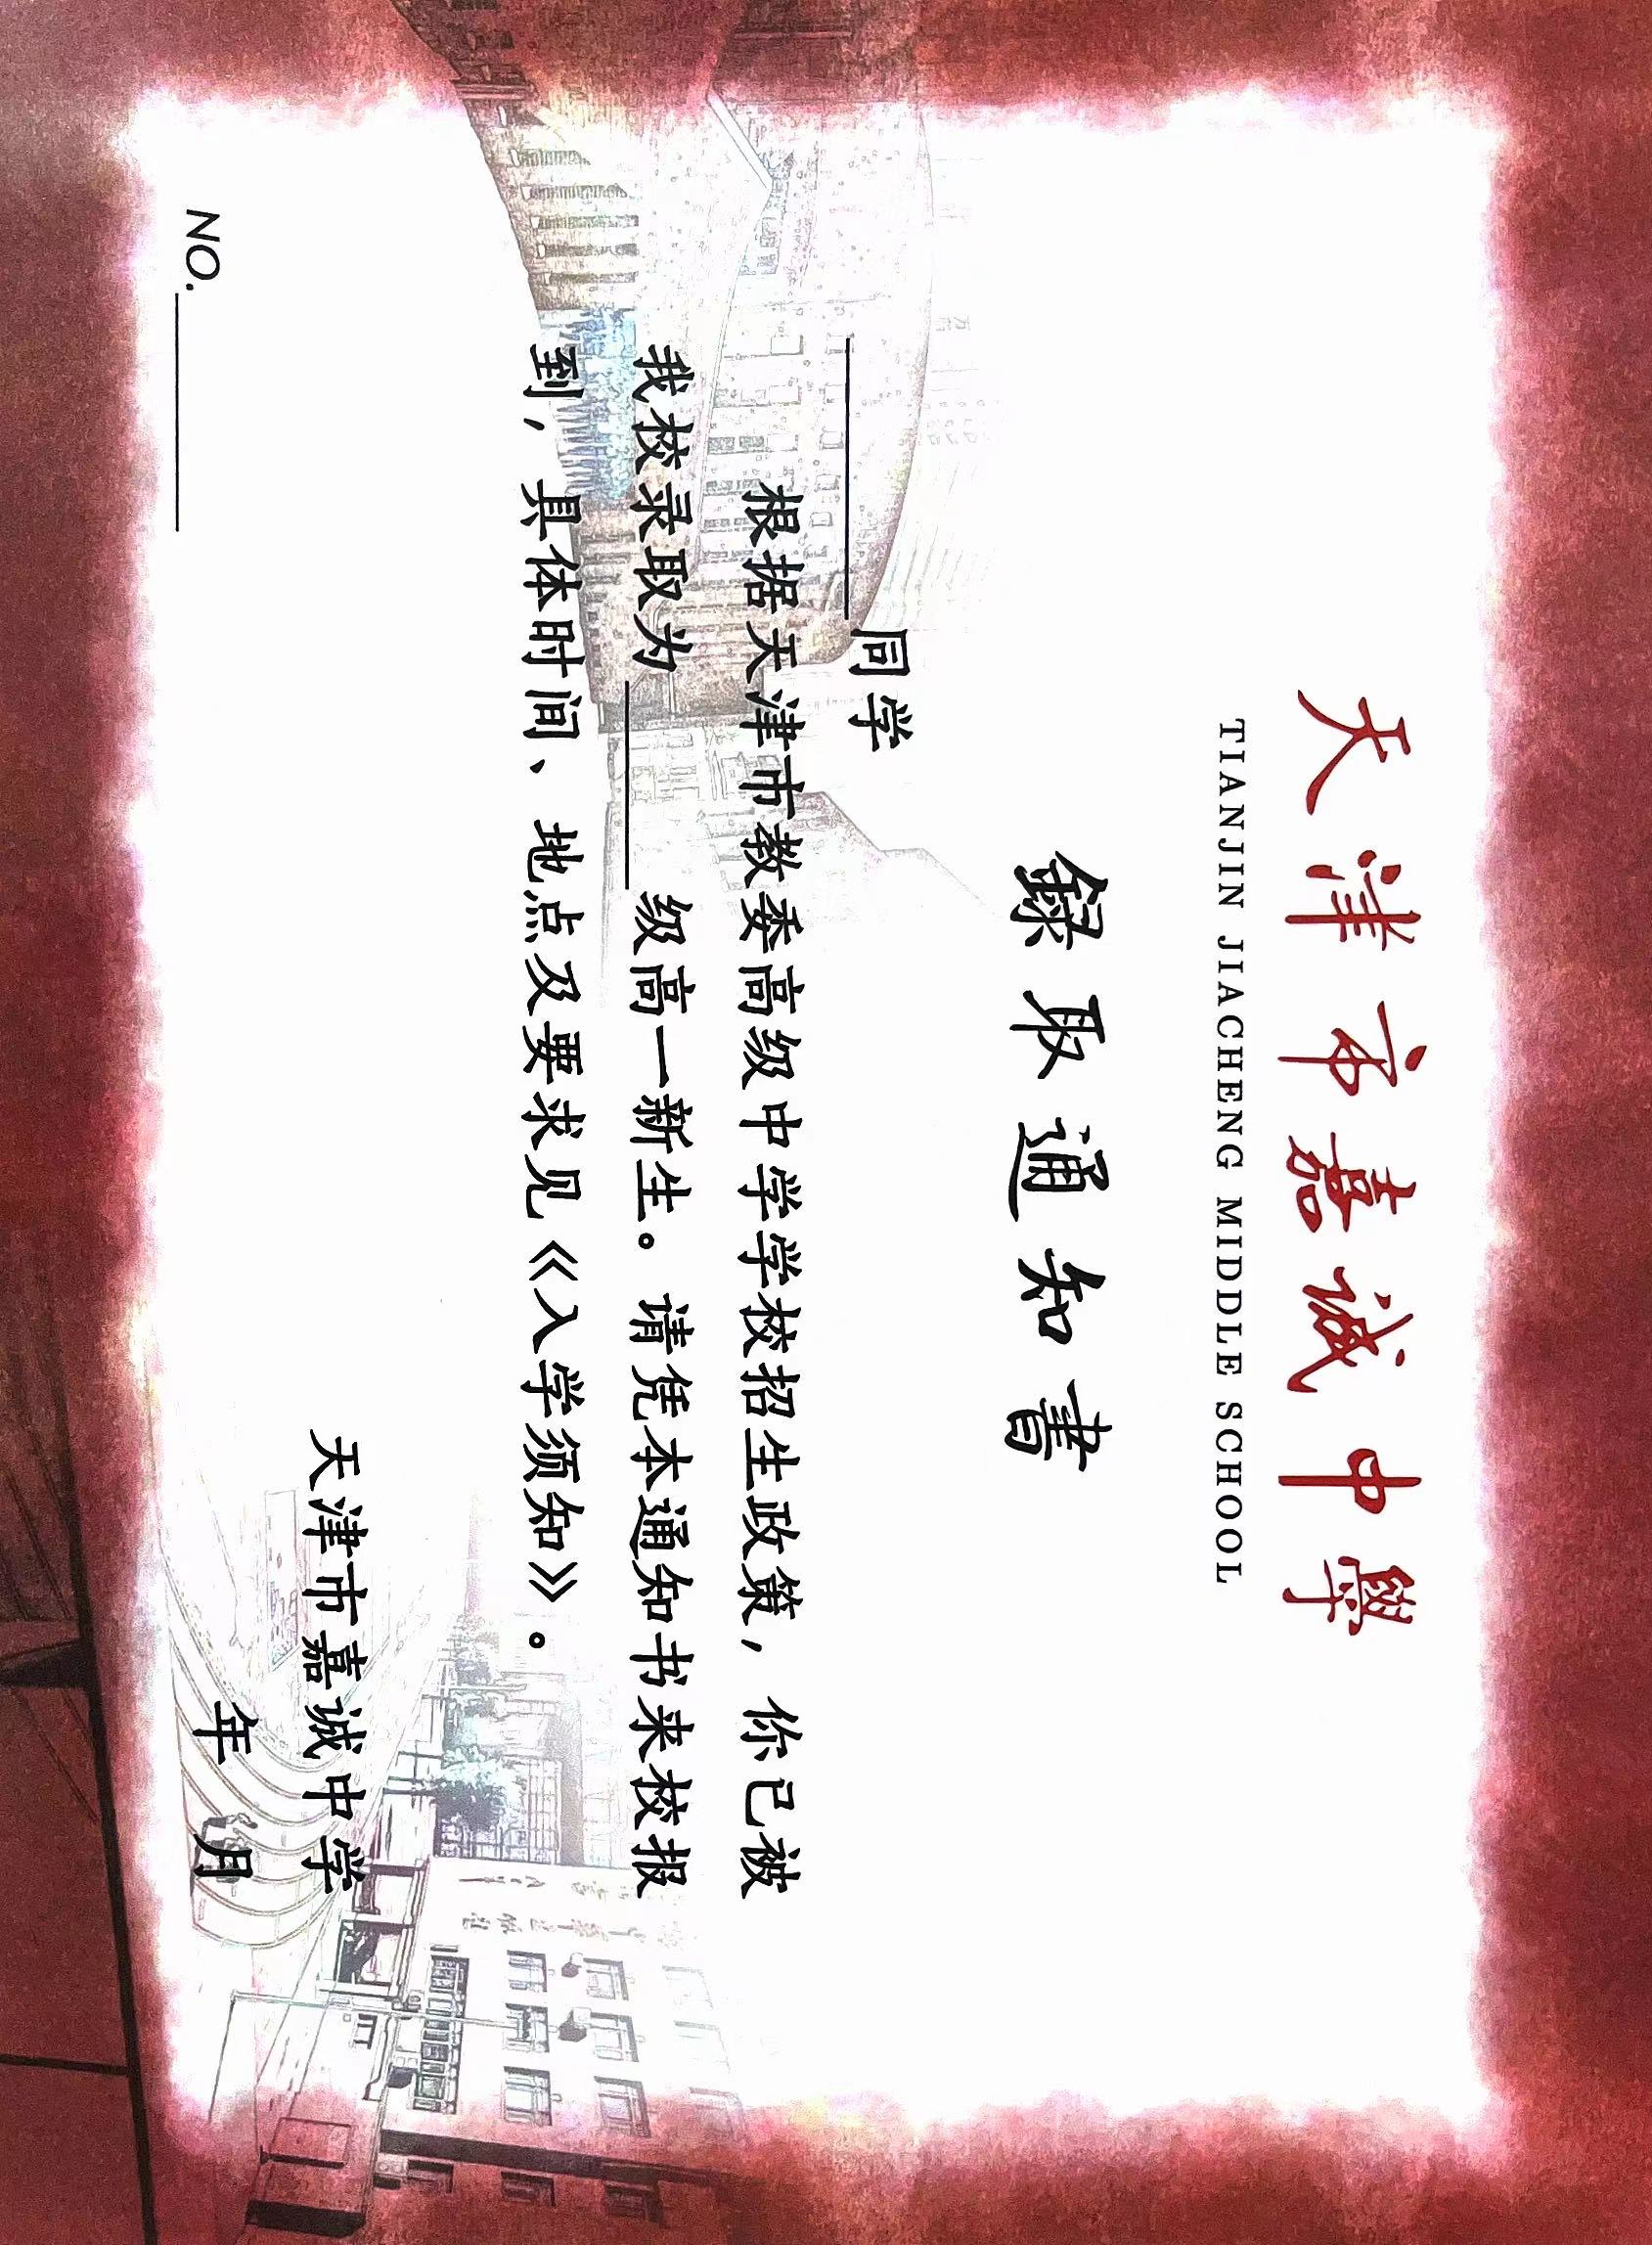 天津市嘉诚中學
TIANJIN JIACHENG MIDDLE SCHOOL
録取通知書
________同学
根据天津市教委高级中学学校招生政策，你已被
我校录取为______级高一新生。请凭本通知书来校报
到，具体时间、地点及要求见《入学须知》。
天津市嘉诚中学
年 月
NO.________